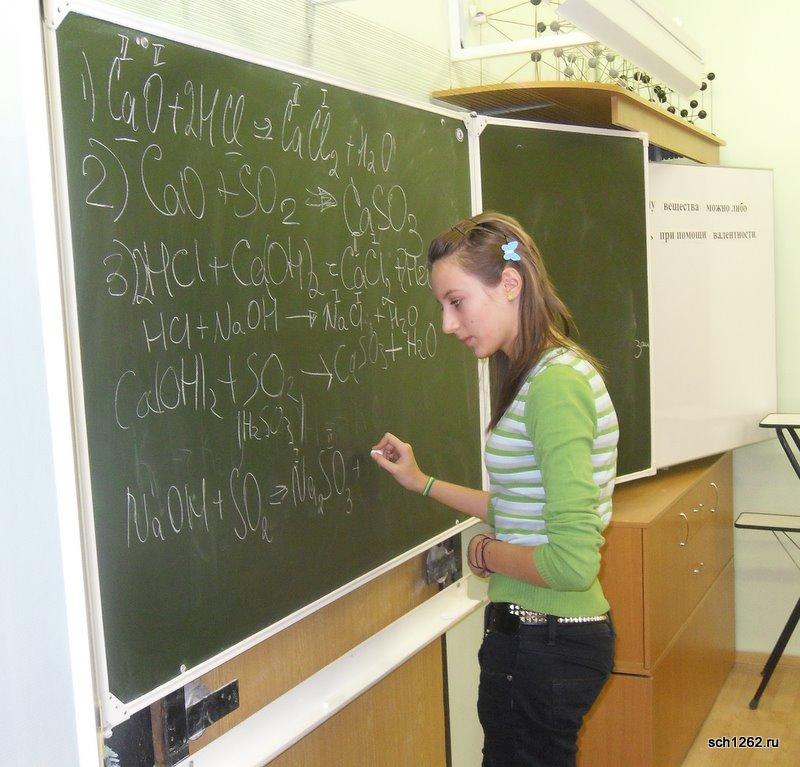 II II IV
1) CaO + 2HCl ⇒ CaCl₂ + H₂O
II I
2) CaO + SO₂ ⇒ CaSO₃
3) 2HCl + Ca(OH)₂ = CaCl₂ +
II I
HCl + NaOH → NaCl + H₂O
I I
Ca(OH)₂ + SO₂ → CaSO₃ + H₂O
(H₂SO₃)
NaOH + SO₂ ⇒ Na₂SO₃ +
I II
вещества можно либо
при помощи валентности
sch1262.ru